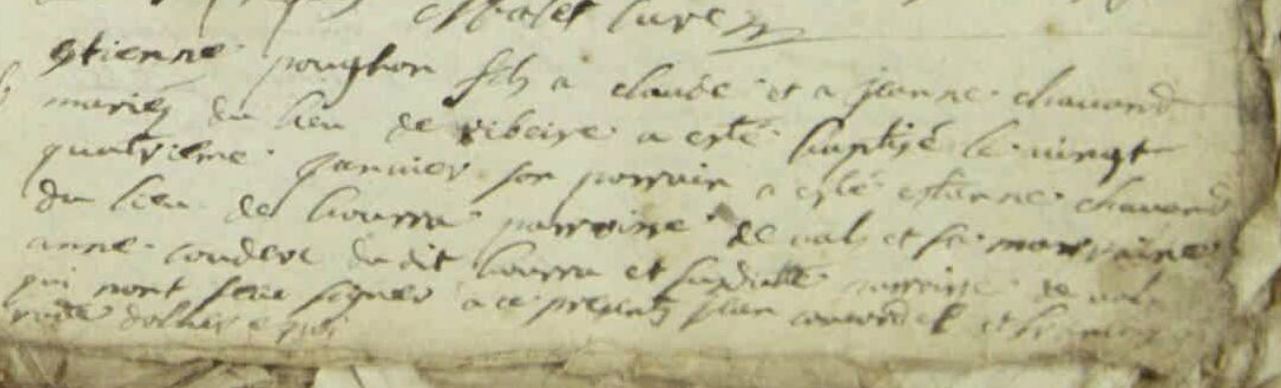 curé
estienne poughon fils a claude et a jeanne chauand
mariés du lieu de ribeire a esté baptisé le vingt
quatrieme janvier son parrain a esté estienne chauand
du lieu de lioura parroisse de vals et sa marraine
anne couderc du dit lioura et susditte parroisse de vals
qui nont sceu signer a ce presents jean et